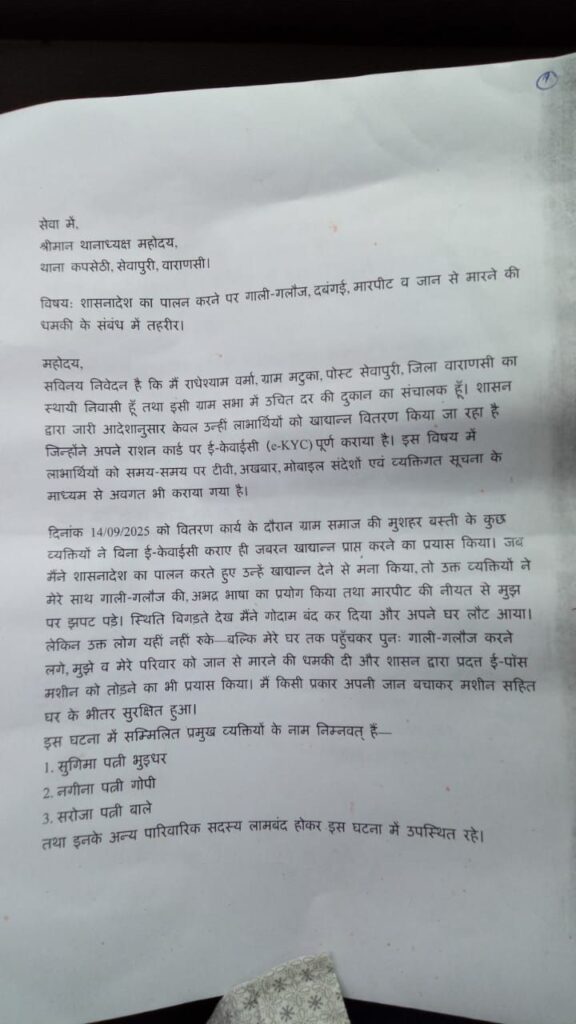 १
सेवा में,
श्रीमान थानाध्यक्ष महोदय,
थाना कपसेठी, सेवापुरी, वाराणसी।
विषय: शासनादेश का पालन करने पर गाली-गलौज, दबंगई, मारपीट व जान से मारने की
धमकी के संबंध में तहरीर।
महोदय,
सविनय निवेदन है कि मैं राधेश्याम वर्मा, ग्राम मटुका, पोस्ट सेवापुरी, जिला वाराणसी का
स्थायी निवासी हूँ तथा इसी ग्राम सभा में उचित दर की दुकान का संचालक हूँ। शासन
द्वारा जारी आदेशानुसार केवल उन्हीं लाभार्थियों को खाद्यान्न वितरण किया जा रहा है
जिन्होंने अपने राशन कार्ड पर ई-केवाईसी (e-KYC) पूर्ण कराया है। इस विषय में
लाभार्थियों को समय-समय पर टीवी, अखबार, मोबाइल संदेशों एवं व्यक्तिगत सूचना के
माध्यम से अवगत भी कराया गया है।
दिनांक 14/09/2025 को वितरण कार्य के दौरान ग्राम समाज की मुशहर बस्ती के कुछ
व्यक्तियों ने बिना ई-केवाईसी कराए ही जबरन खाद्यान्न प्राप्त करने का प्रयास किया। जब
मैंने शासनादेश का पालन करते हुए उन्हें खाद्यान्न देने से मना किया, तो उक्त व्यक्तियों ने
मेरे साथ गाली-गलौज की, अभद्र भाषा का प्रयोग किया तथा मारपीट की नीयत से मुझ
पर झपट पड़े। स्थिति बिगड़ते देख मैंने गोदाम बंद कर दिया और अपने घर लौट आया।
लेकिन उक्त लोग यहीं नहीं रुके—बल्कि मेरे घर तक पहुँचकर पुनः गाली-गलौज करने
लगे, मुझे व मेरे परिवार को जान से मारने की धमकी दी और शासन द्वारा प्रदत्त ई-पॉस
मशीन को तोड़ने का भी प्रयास किया। मैं किसी प्रकार अपनी जान बचाकर मशीन सहित
घर के भीतर सुरक्षित हुआ।
इस घटना में सम्मिलित प्रमुख व्यक्तियों के नाम निम्नवत् हैं—
1. सुगिमा पत्नी भुइधर
2. नगीना पत्नी गोपी
3. सरोजा पत्नी बाले
तथा इनके अन्य पारिवारिक सदस्य लामबंद होकर इस घटना में उपस्थित रहे।